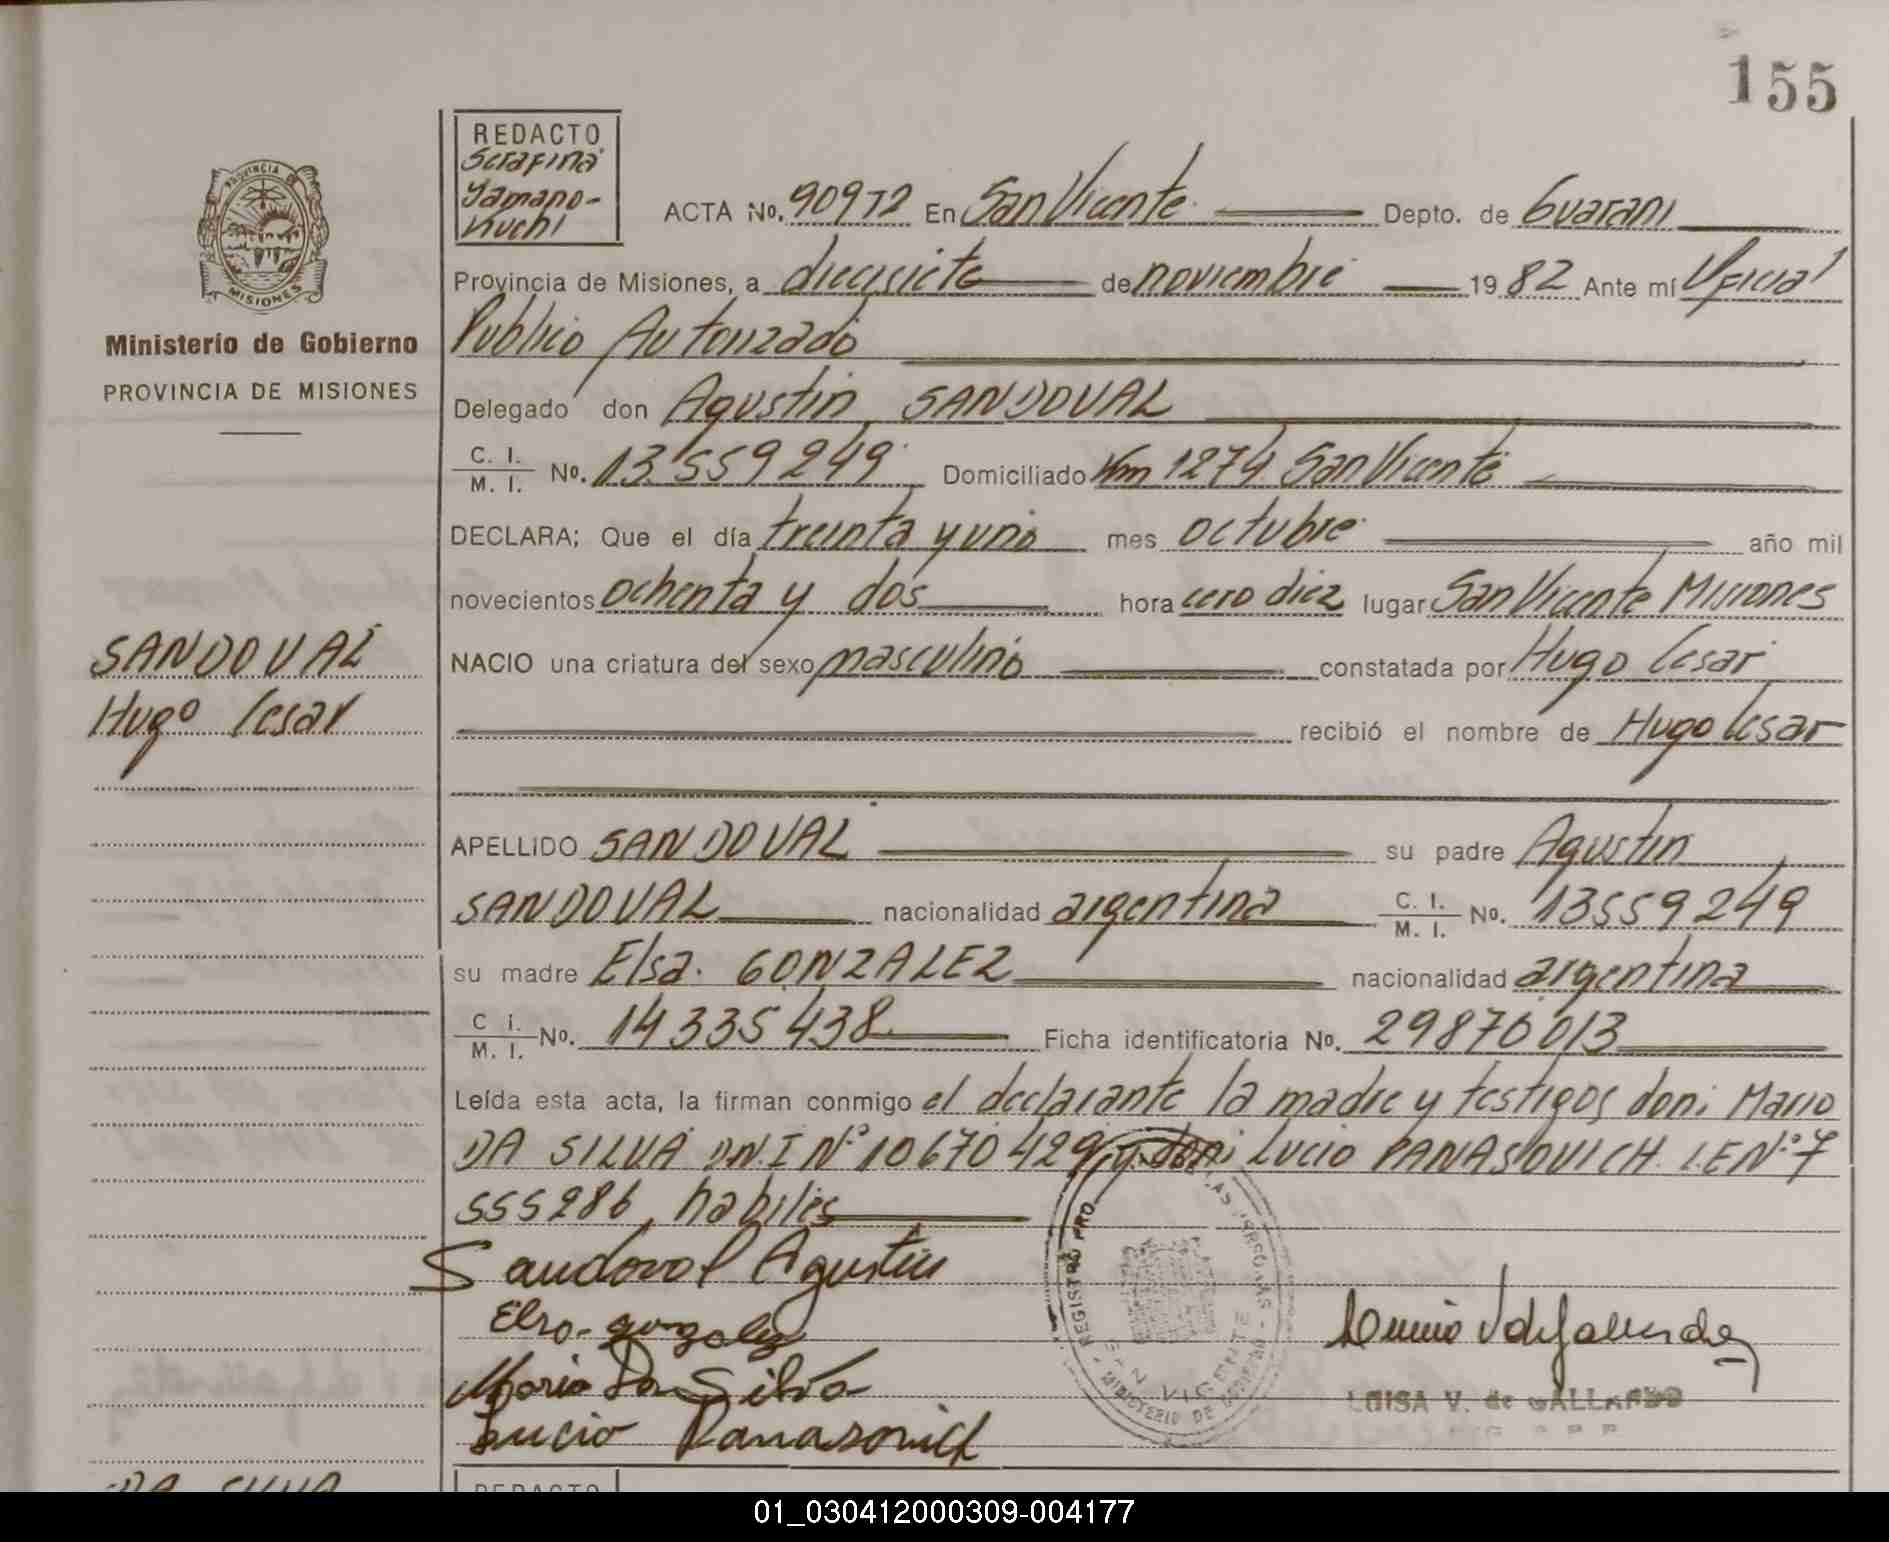 155
PROVINCIA DE
MISIONES
Ministerio de Gobierno
PROVINCIA DE MISIONES
SANDOVAL
Hugo Cesar
REDACTO
Serafina
Yamano-
kuchi
ACTA No. 90972 En San Vicente Depto. de Guarani
Provincia de Misiones, a diecisiete de noviembre 1982 Ante mí Oficial
Publico Autorizado
Delegado don Agustin SANDOVAL
C. I. / M. I. No. 13.559249 Domiciliado Km 1274 San Vicente
DECLARA; Que el día treinta y uno mes octubre año mil
novecientos ochenta y dos hora cero diez lugar San Vicente Misiones
NACIO una criatura del sexo masculino constatada por Hugo Cesar
recibió el nombre de Hugo Cesar
APELLIDO SANDOVAL su padre Agustin
SANDOVAL nacionalidad argentina C. I. / M. I. No. 13559249
su madre Elsa. GONZALEZ nacionalidad argentina
C i. / M. I. No. 14335438 Ficha identificatoria No. 29876013
Leída esta acta, la firman conmigo el declarante la madre y testigos don: Mario
DA SILVA D.N.I Nº 10670429 y don: Lucio PANASOVICH. L.E Nº 7
555286 habiles
Sandoval Agustin
Elsa - gonzalez
Mario Da Silva
Lucio Panasovich
REGISTRO PRO LAS PERSONAS
SAN VICENTE
MINISTERIO DE GOBIERNO
LUISA V. de GALLARDO
DA SILVA
REDACTO
01_030412000309-004177